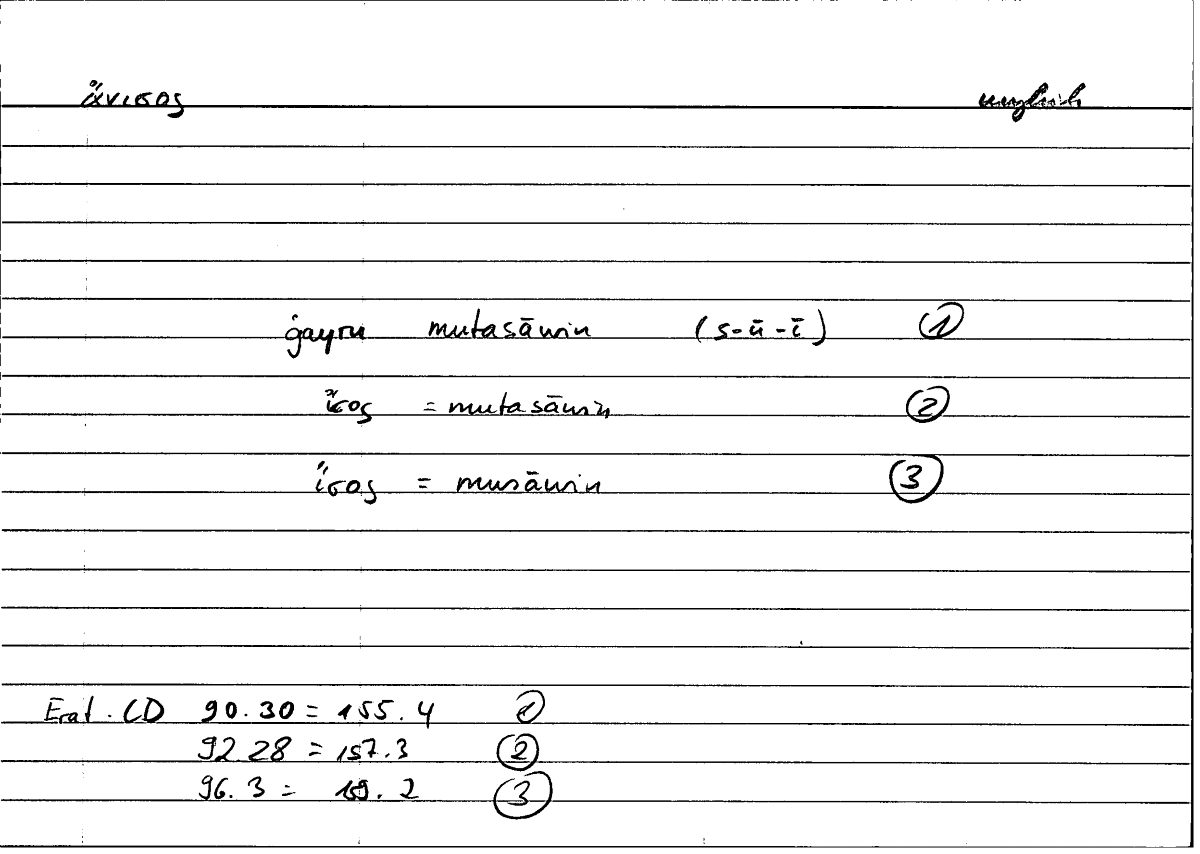 ἄνισος ungleich
ġayru mutasāwin (s-ū-ī) ①
ἴσος = mutasāwin ②
ἴσος = musāwin ③
Erat. CD 90.30 = 155.4 ①
92.28 = 157.3 ②
96.3 = 159.2 ③